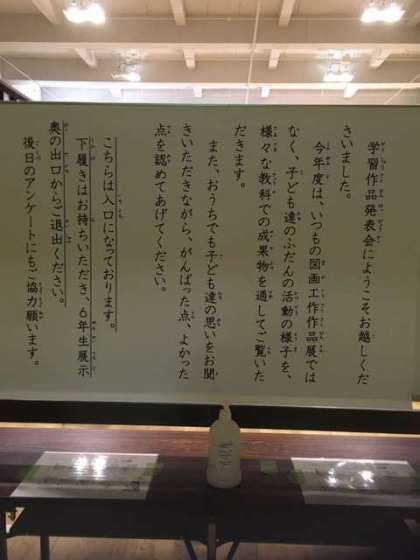 学習作品発表会にようこそお越しくだ
さいました。
今年度は、いつもの図画工作作品展では
なく、子ども達のふだんの活動の様子を、
様々な教科での成果物を通してご覧いた
だきます。
また、おうちでも子ども達の思いをお聞
きいただきながら、がんばった点、よかった
点を認めてあげてください。
こちらは入口になっております。
下履きはお持ちいただき、6年生展示
奥の出口からご退出ください。
後日のアンケートにもご協力願います。